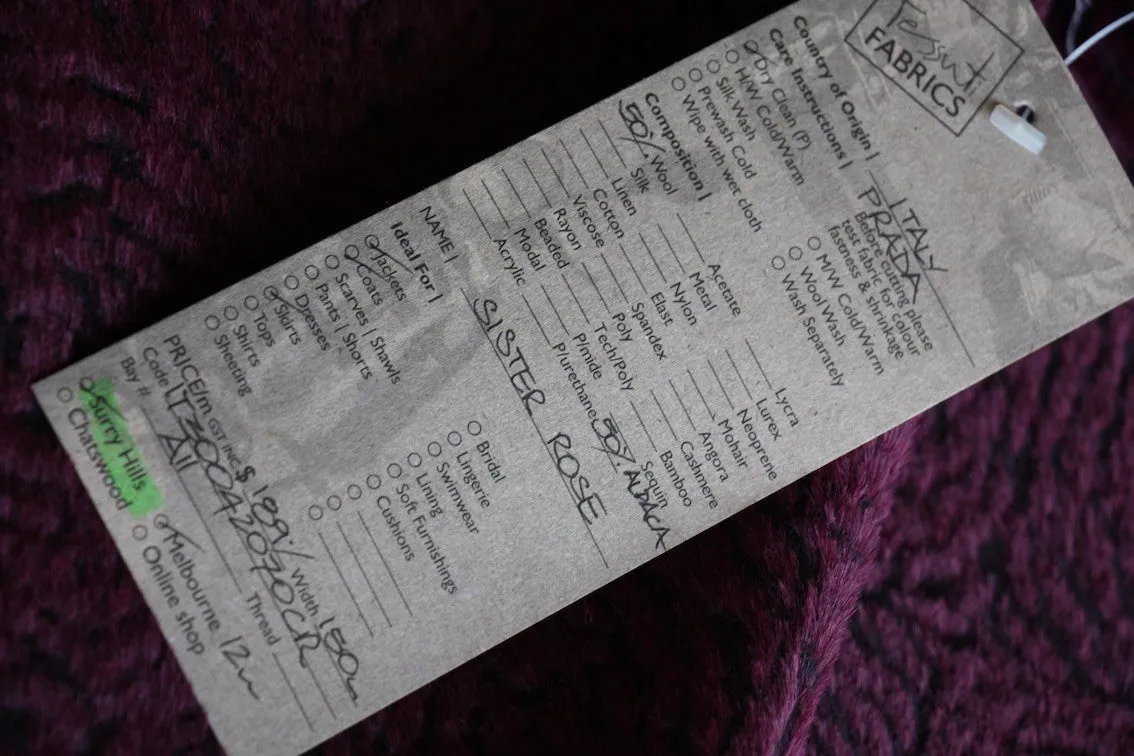 Tessuti
FABRICS
Country of Origin | ITALY
PRADA
Care Instructions | Before cutting please
test fabric for colour
fastness & shrinkage
Dry Clean (P)
H/W Cold/Warm
Silk Wash
Prewash Cold
Wipe with wet cloth
M/W Cold/Warm
Wool Wash
Wash Separately
Composition |
50% Wool
Silk
Linen
Cotton
Viscose
Rayon
Beaded
Modal
Acrylic
Acetate
Metal
Nylon
Elast
Spandex
Poly
Tech/Poly
P/mide
P/urethane
Lycra
Lurex
Neoprene
Mohair
Angora
Cashmere
Bamboo
Sequin
50% ALPACA
NAME | SISTER ROSE
Ideal For |
Jackets
Coats
Scarves | Shawls
Pants | Shorts
Dresses
Skirts
Tops
Shirts
Sheeting
Bridal
Lingerie
Swimwear
Lining
Soft Furnishings
Cushions
PRICE/m GST INC $ 189/ Width 150
Code IT300042070CR
Bay # A11 Thread
Surry Hills
Chatswood
Melbourne 12m
Online shop